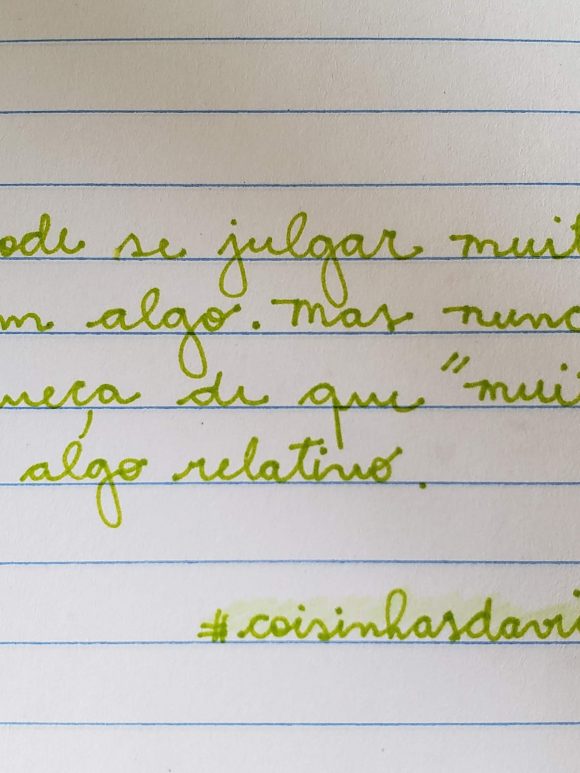 ode se julgar muit
m algo. Mas nunc
ueça de que "mui
algo relativo.
#coisinhasdavi